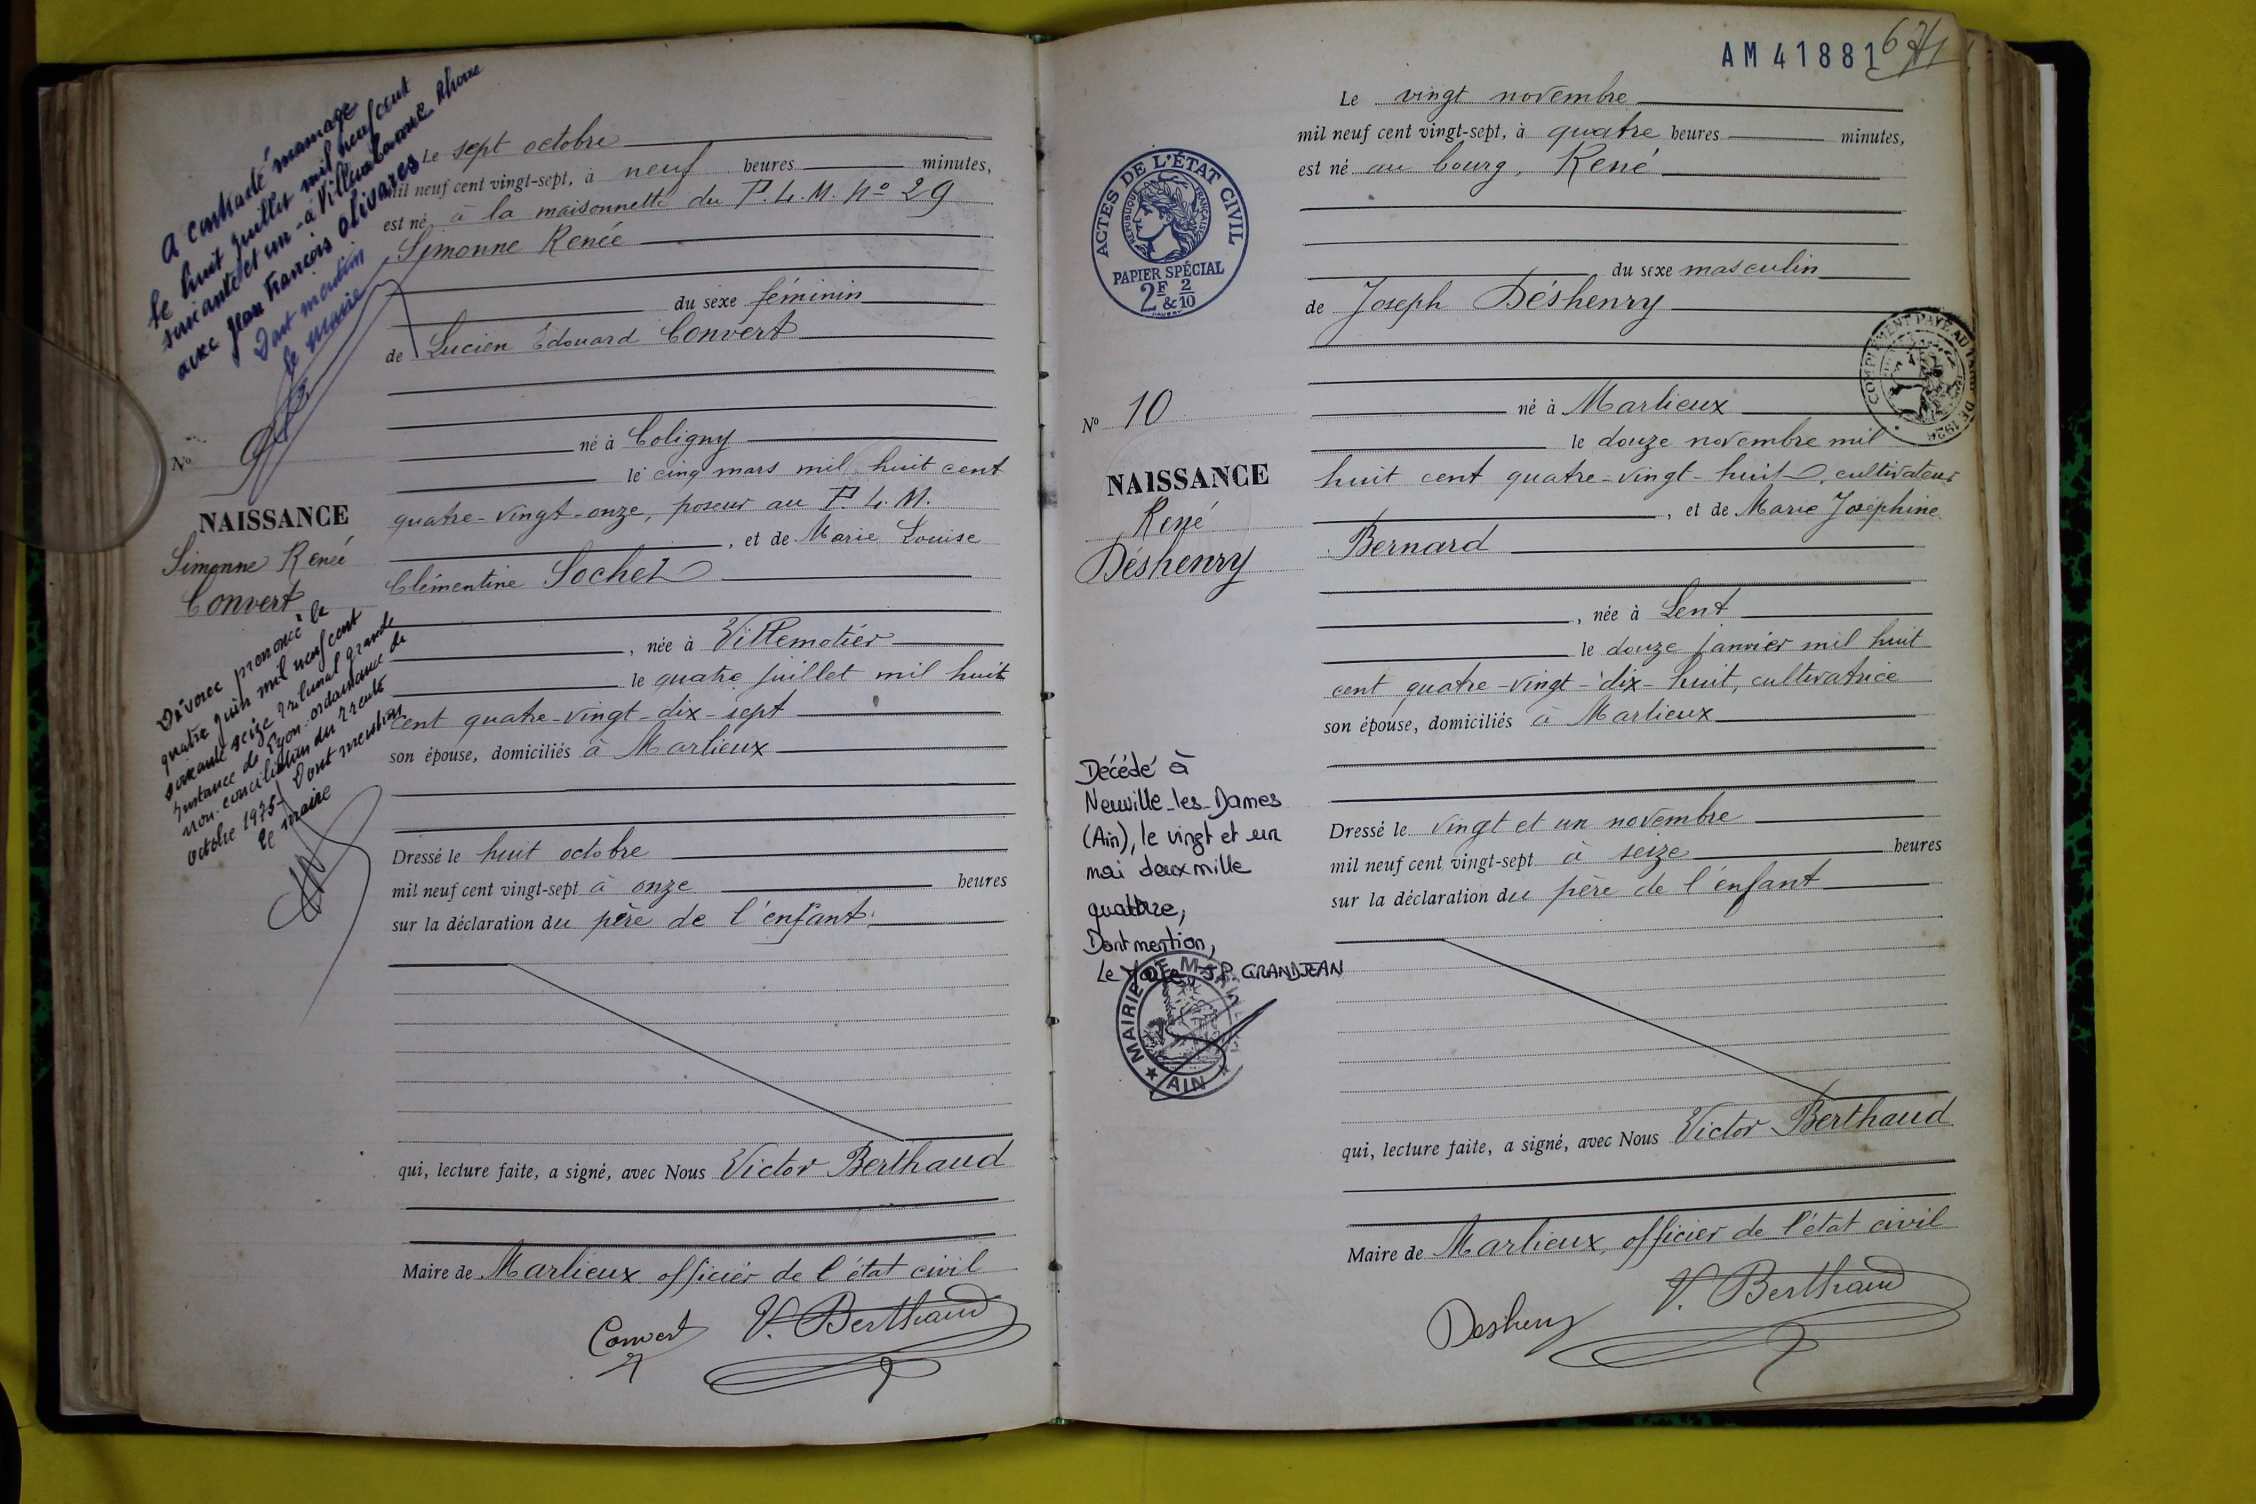 A contracté mariage
le huit juillet mil neuf cent
soixante et un - à Villeurbanne Rhône
avec Jean François Olivares
Dont mention
le maire
Le sept octobre
mil neuf cent vingt-sept, à neuf heures minutes,
est né à la maisonnette du P.L.M. No 29
Simonne Renée
du sexe féminin
de Lucien Edouard Convert
né à Coligny
le cinq mars mil huit cent
quatre-vingt-onze, poseur au P.L.M.
, et de Marie Louise
Clémentine Sochet
, née à Villemotier
le quatre juillet mil huit
cent quatre-vingt-dix-sept
son épouse, domiciliés à Marlieux
Dressé le huit octobre
mil neuf cent vingt-sept à onze heures
sur la déclaration du père de l'enfant,
qui, lecture faite, a signé, avec Nous Victor Berthaud
Maire de Marlieux officier de l'état civil
Convert V. Berthaud
No 9
NAISSANCE
Simonne Renée
Convert
Divorce prononcé le
quatre juin mil neuf cent
soixante seize Tribunal grande
Instance de Lyon. ordonnance de
non-conciliation du trente
octobre 1975. Dont mention
le maire
AM 41881
67/1
Le vingt novembre
mil neuf cent vingt-sept, à quatre heures minutes,
est né au bourg, René
du sexe masculin
de Joseph Déshenry
né à Marlieux
le douze novembre mil
huit cent quatre-vingt-huit, cultivateur
, et de Marie Joséphine
Bernard
, née à Lent
le douze janvier mil huit
cent quatre-vingt-dix-huit, cultivatrice
son épouse, domiciliés à Marlieux
Dressé le vingt et un novembre
mil neuf cent vingt-sept à seize heures
sur la déclaration du père de l'enfant
qui, lecture faite, a signé, avec Nous Victor Berthaud
Maire de Marlieux, officier de l'état civil
Deshenry V. Berthaud
ACTES DE L'ÉTAT CIVIL
RÉPUBLIQUE FRANÇAISE
PAPIER SPÉCIAL
2F & 2/10
COMPLÉMENT PAYÉ AU TARIF DE 1926
No 10
NAISSANCE
René
Déshenry
Décédé à
Neuville-les-Dames
(Ain), le vingt et un
mai deux mille
quatre,
Dont mention,
Le Maire JP. GRANDJEAN
MAIRIE DE MARLIEUX
AIN